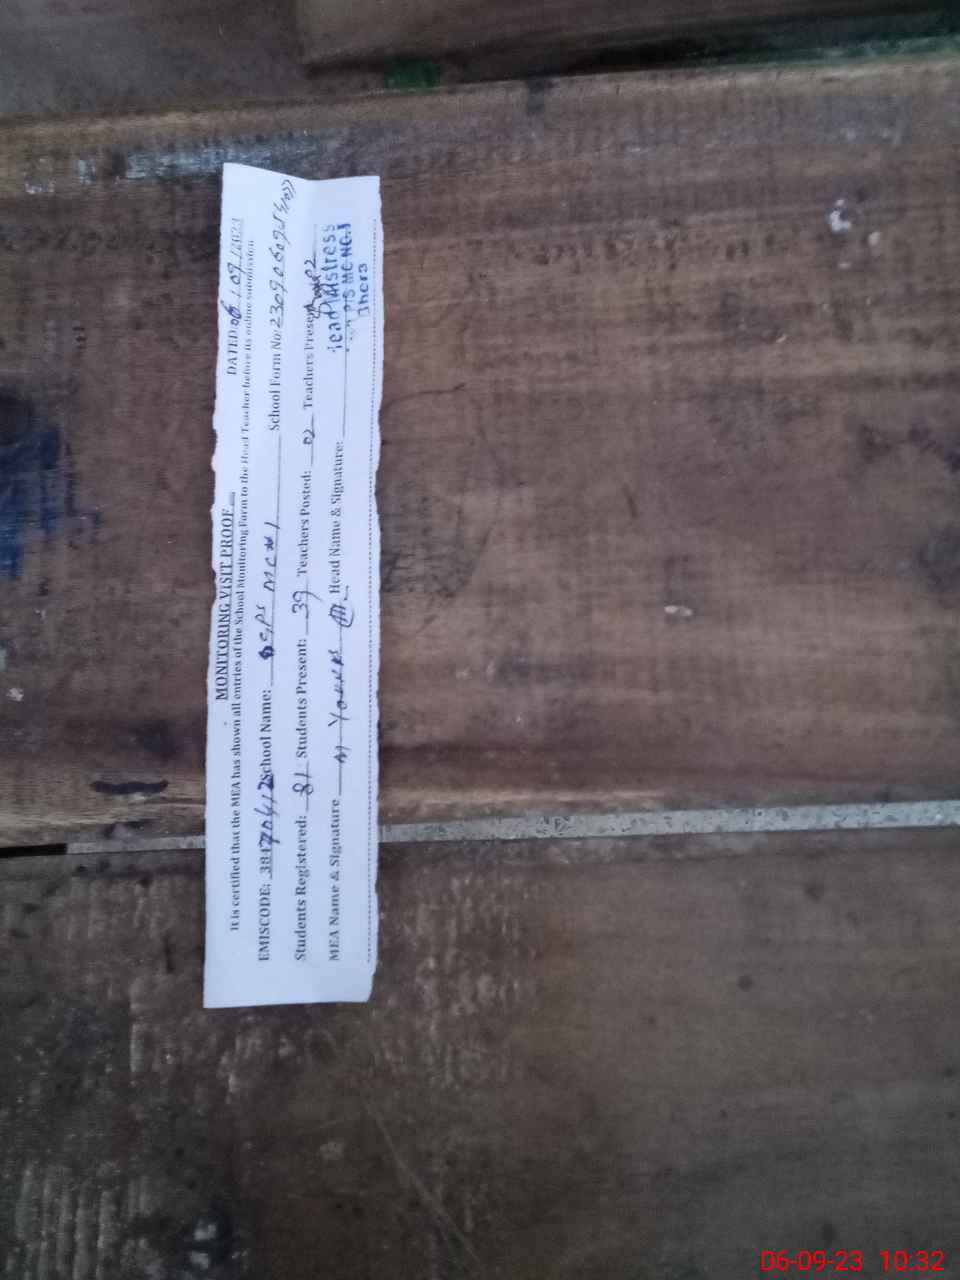 MONITORING VISIT PROOF
DATED: 06/09/2023
It is certified that the MEA has shown all entries of the School Monitoring Form to the Head Teacher before its online submission.
EMISCODE: 38470412 School Name: GGPS MC # 1 School Form No:
Students Registered: 81 Students Present: 39 Teachers Posted: 02 Teachers Present: 2
MEA Name & Signature M Younus Head Name & Signature:
Head Mistress
MC NO.1
Bhera
06-09-23 10:32